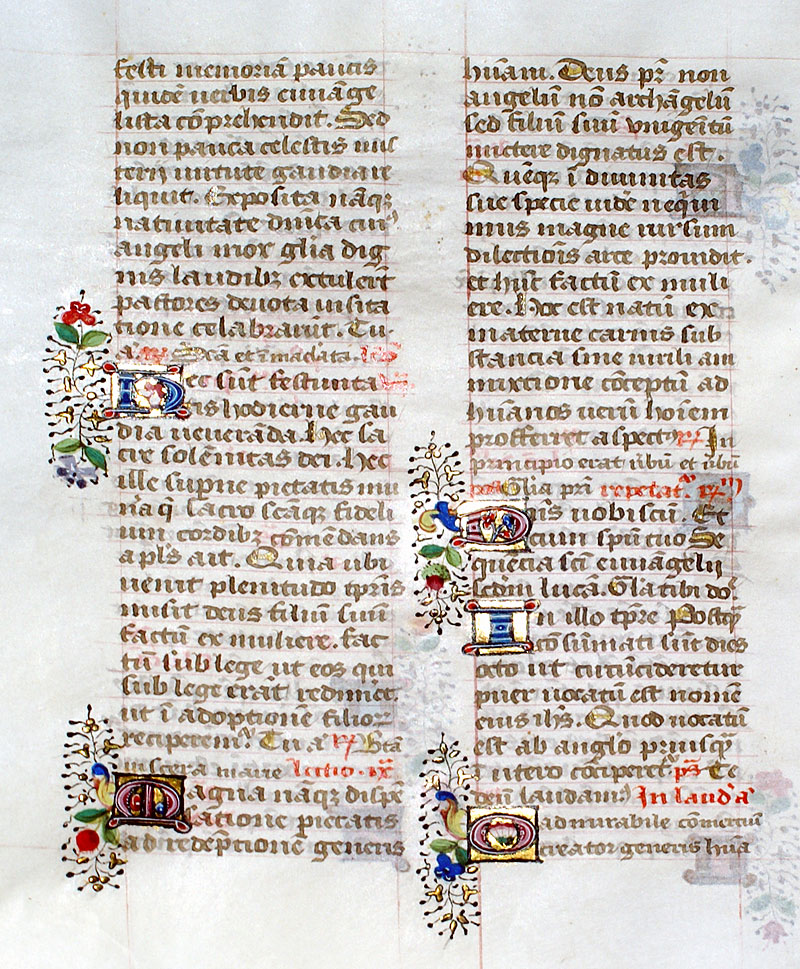 festi memoriā paucis
quidē verbis euuāge
lista cōprehendit. Sed
non pauca celestis mis
terij virtute gaudiare
liquit. Exposita nāqȝ
natiuitate dn̄ica cui⁹
angeli mox glīa dig
nis laudibȝ extulerūt
pastores deuota visita
tione celabrarūt. Tu.
a. Sēa et īmaclata.
Hec sūt festiuita
tis hodierne gau
dia veneranda. Hec sa
cre solēnitas dei. Hec
ille superne pietatis mu
nera q̄ sacro sēaqȝ fideli
um cordibȝ cōmēdans
apl̄s ait. Qm̄a ubi
venit plenitudo tp̄ris
misit deus filiū suū
factū ex muliere. fac
tū sub lege ut eos qui
sub lege erāt redimēt
ut ī adoptionē filioꝝ
reciperem⁹. Tu a℟ Btā
viscera marie Lectio. ix
Magna naqȝ dispē
satione pietatis
ad redēptionē generis
hūani. Deus pr̄ non
angelū nō archāgelū
sed filiū suū vnigenitū
mictere dignatus est.
Quēqȝ ī diuinitas
sue specie videre neq̄ui
mus magne rursum
dilectiōis arte prouidit.
et hūc factū ex muli
ere. Hoc est natū ex
materne carnis sub
stancia sine virili am
mixcione cōceptū ad
hūanos verū hoīem
profferret aspect⁹ ℟ In
principio erat ūbū et ūbū
Glīa pri repetat᷑ ℟
Dn̄s nobiscū. Et
cum spūtuo Se
quēcia sci euuāgelij
scdm̄ lucā. Gla tibi do.
In illo tp̄re Postq̄
cōsūmati sūt dies
octo ut circūcideretur
puer vocatū est nomē
eius ih̄s. Quod vocatū
est ab anglo priusq̄
ī utero cōciperet᷑ ps̄ Te
deū laudam⁹ In laud' ā
O admirabile cōmerciū
creator generis hūa